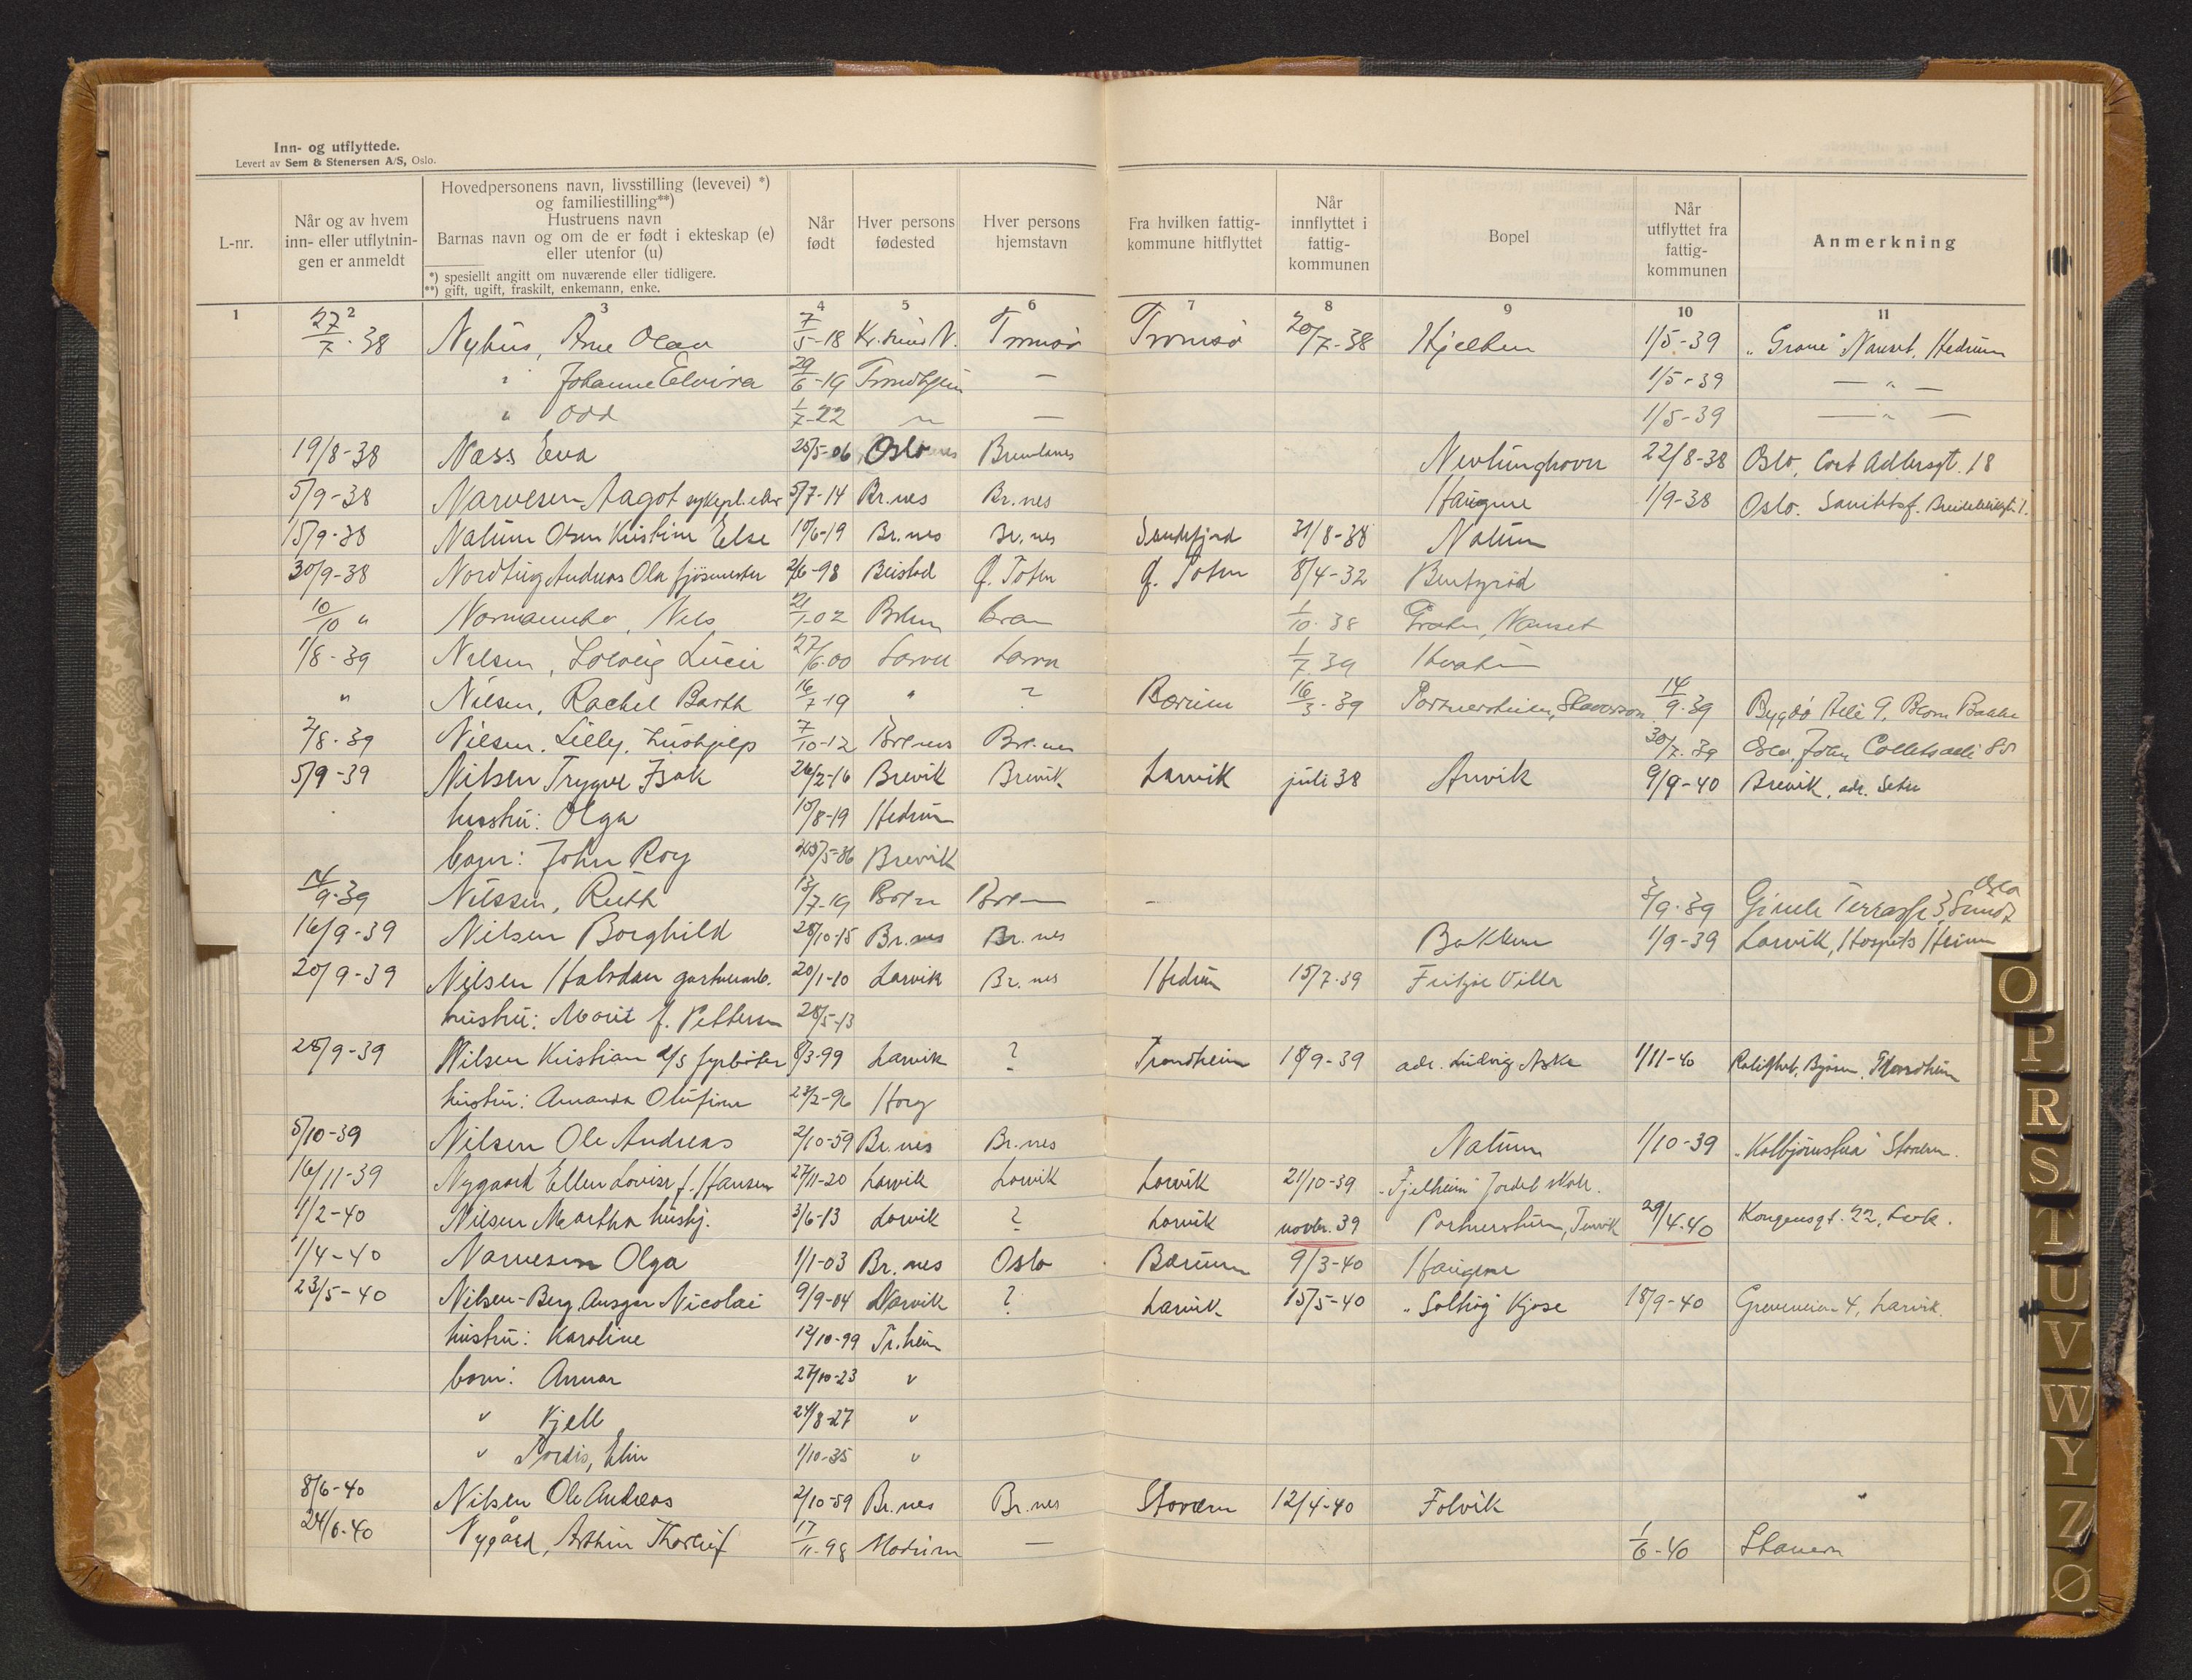 Inn- og utflyttede.
Levert av Sem & Stenersen A/S, Oslo.
L-nr.
Når og av hvem inn- eller utflytnin- gen er anmeldt
Hovedpersonens navn, livsstilling (levevei) *)
og familiestilling**)
Hustruens navn
Barnas navn og om de er født i ekteskap (e)
eller utenfor (u)
*) spesiellt angitt om nuværende eller tidligere.
**) gift, ugift, fraskilt, enkemann, enke.
Når født
Hver persons fødested
Hver persons hjemstavn
Fra hvilken fattig- kommune hitflyttet
Når innflyttet i fattig- kommunen
Bopel
Når utflyttet fra fattig- kommunen
Anmerkning
1 2 3 4 5 6 7 8 9 10 11
27/7-38 Nyhus, Arne Olav 7/5-18 Kr.sund N. Tromsø Tromsø 20/7-38 1/5-39 "Grane" Nanset, Hedrum
" Johanne Elvira 29/6-19 Trondhjem — 1/5-39 — " —
" Odd 1/7-22 — 1/5-39 — " —
19/8-38 Næss Eva 25/5-06 Oslo Brunlanes Nevlunghavn 22/8-38 Oslo, Cort Adlersgt. 18
5/9-38 Narvesen Aagot sykepl.elev 5/7-14 Br.nes Br.nes Haugene 1/9-38 Oslo. Sanitetsf.
15/9-38 Nalum Olsen Kristine Else 10/6-19 Br.nes Br.nes Sandefjord 31/8-38 Nalum
30/9-38 Nordtug Andreas Ola fjøsmester 2/6-98 Beistad Ø. Toten Ø. Toten 8/4-32
10/10 " , Nils 21/1-02 1/10-38 Nanset
1/8-39 Nilsen, Solveig 27/6-00 Larvik Larvik 1/7-39
" Nilsen, Rachel Barth 16/7-19 " ? Bærum 16/3-39 14/9-39 Bygdø
2/8-39 Nilsen, Lilly, hushjelp 7/10-12 Br.nes Br.nes 30/7-39 Oslo, John Colletsalle
5/9-39 Nilsen Trygve Isak 26/2-16 Brevik Brevik Larvik juli 38 Anvik 9/9-40 Brevik, adr.
hustru: Olga 15/8-19 Hedrum
barn: John Roy Brevik
14/9-39 Nilssen, Ruth 13/7-19 — 3/9-39 Gimle Terrasse 3 Oslo
16/9-39 Nilsen Borghild 28/10-15 Br.nes Br.nes Bakken 1/9-39 Larvik, Hospits Heim
20/9-39 Nilsen Halvdan gartnerarb. 20/1-10 Larvik Br.nes Hedrum 15/7-39 Fritzøe Villa
hustru: Marit f. Pettersen 28/5-13
25/9-39 Nilsen Kristian d/s fyrbøter 8/3-99 Larvik ? Trondheim 18/9-39 adr. Ludvig Aske 1/11-40 Trondheim
hustru: Amanda Olufine 23/2-96 Horg
5/10-39 Nilsen Ole Andreas 2/10-59 Br.nes Br.nes Nalum 1/10-39 "Kolbjørnstua" Stavern.
16/11-39 Nygaard Ellen Lovise f. Hansen 27/11-20 Larvik Larvik Larvik 21/10-39 "Fjelheim" Jordet skole.
1/2-40 Nilsen Martha hushj. 3/6-13 Larvik ? Larvik novbr. 39 29/4-40 Kongensgt. 22, Lvk.
1/4-40 Narvesen Olga 1/1-03 Br.nes Oslo Bærum 9/3-40 Haugene
23/5-40 Nilsen-Berg Ansgar Nicolai 9/9-04 Narvik ? Larvik 15/5-40 "Solhøg" Kjose 18/9-40 Greveveien 4, Larvik.
hustru: Karoline 12/10-99 Tr.heim
barn: Annar 27/10-23 "
" Kjell 24/8-27 "
" Tordis, Elin 1/10-35 "
8/6-40 Nilsen Ole Andreas 2/10-59 Br.nes Br.nes Stavern 12/4-40 Folvik
24/6-40 Nygård, Thorleif 17/11-98 Modum — 1/6-40 Stavern
O
P
R
S
T
U
V
W
Y
Z
Ø